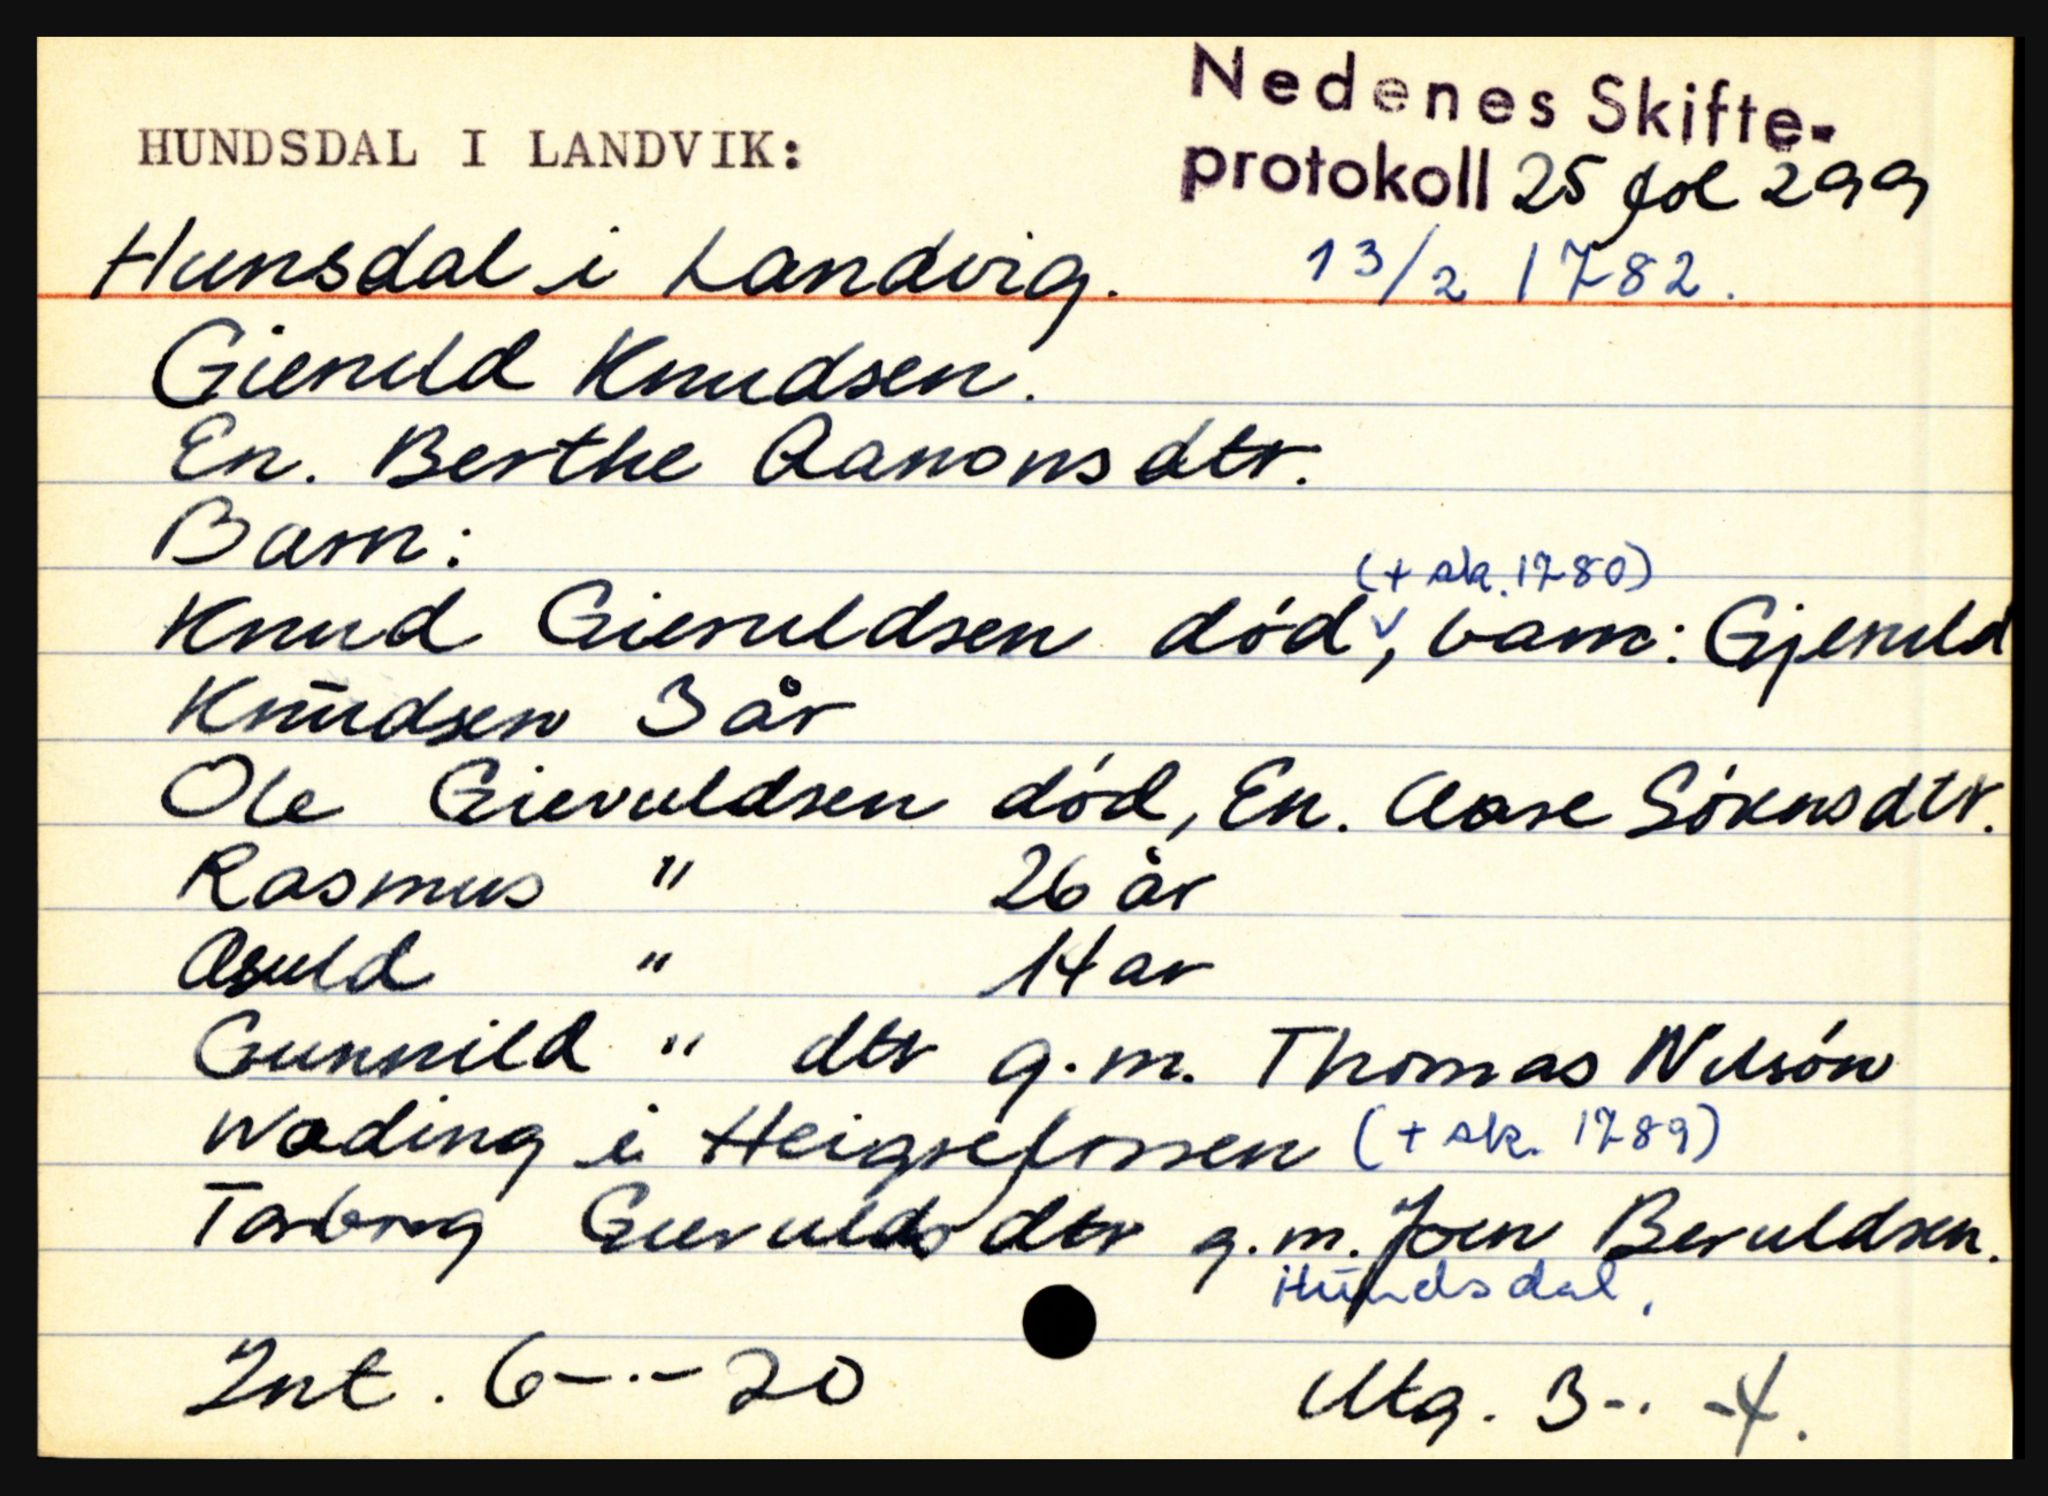 Nedenes Skifte-
HUNDSDAL I LANDVIK:
protokoll 25 fol 299
Hunsdal i Landvig. 13/2 1782.
Gieruld Knudsen.
En. Berthe Aanonsdtr.
Barn:
(+ sk. 1780)
Knud Gieruldsen død, barn: Gjeruld
Knudsen 3 år
Ole Gieruldsen død, En. Aase Sørensdtr.
Rasmus " 26 år
Asuld " 14 ar
Gunnild " dtr g.m. Thomas Nilsøn
Wading i Heigrefossen (+ sk. 1789)
Torborg Gieruldsdtr g.m. Joen Beruldsen.
Hundsdal.
Int. 6-.-20 Utg. 3-. -4.